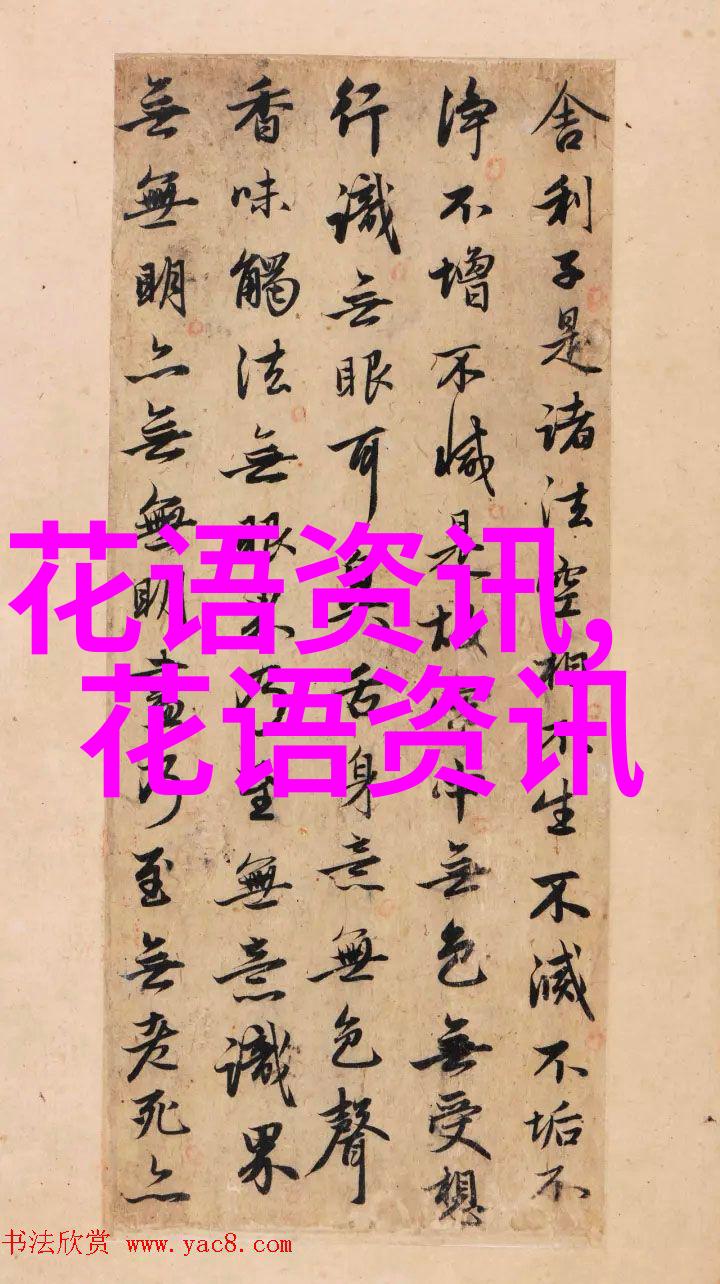 舍利子是諸法空相不生不滅不垢不
淨不增不減是故空中無色無受想
行識無眼耳鼻舌身意無色聲
香味觸法無眼界乃至無意識界
無無明亦無無明盡乃至無老死亦
花语资讯,
花语资讯
书法欣赏 www.yac8.com